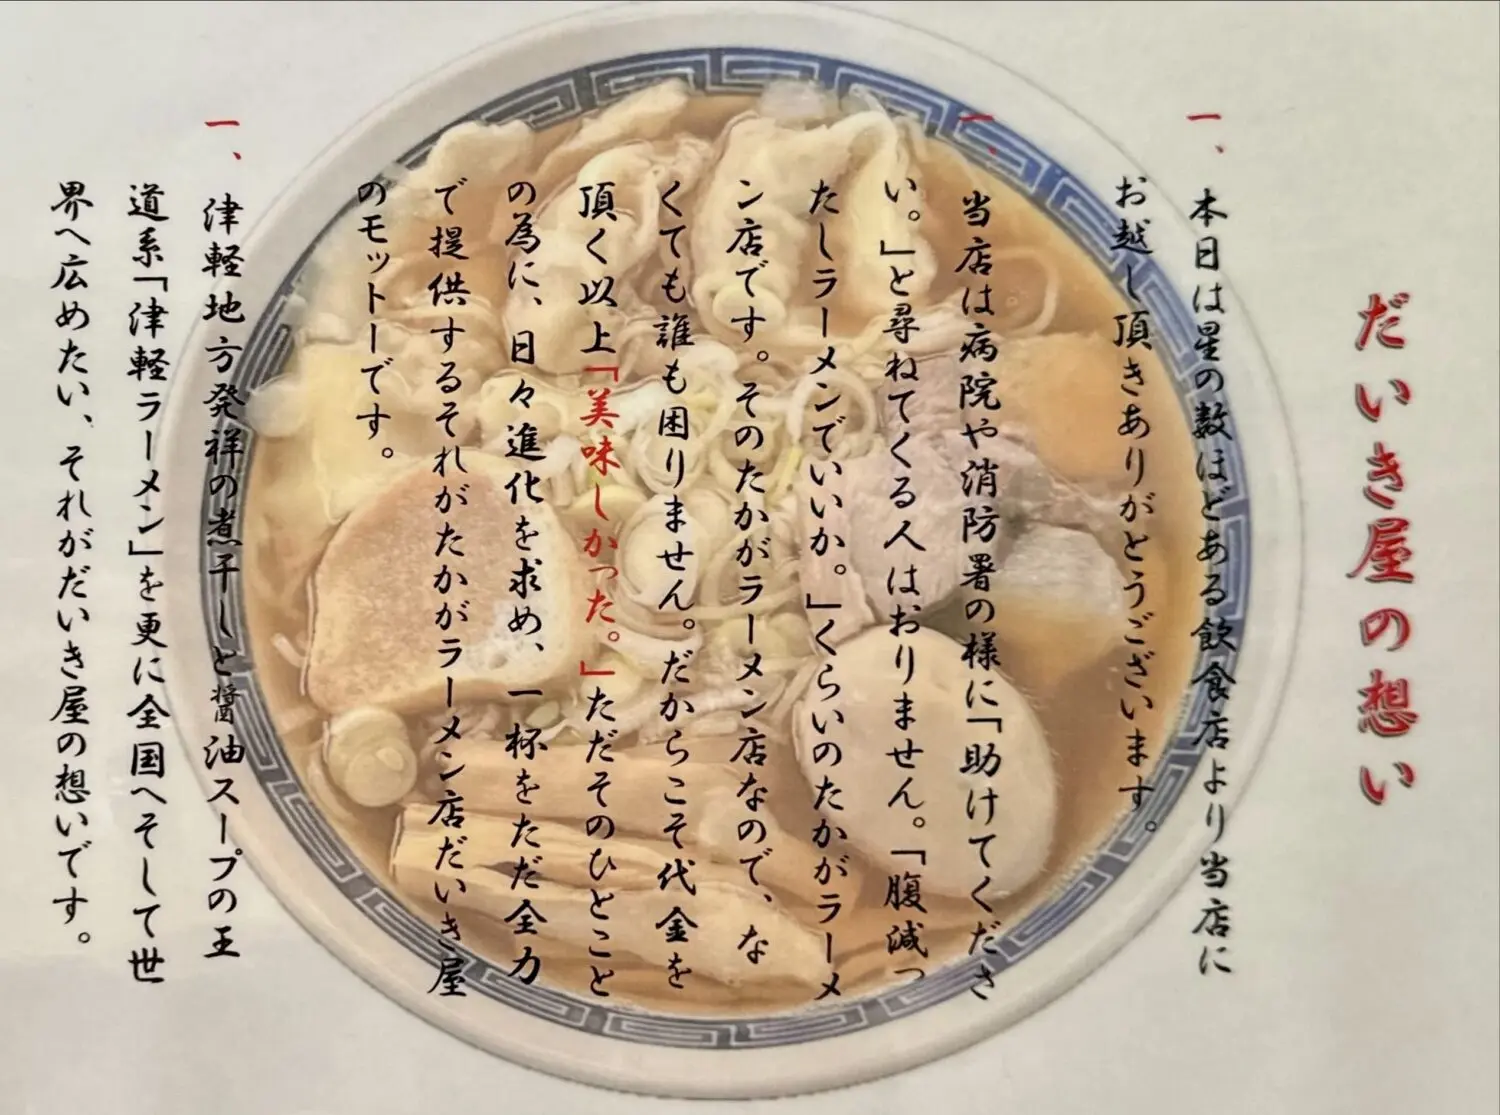 だいき屋の想い
一、本日は星の数ほどある飲食店より当店に
お越し頂きありがとうございます。
一、当店は病院や消防署の様に「助けてくださ
い。」と尋ねてくる人はおりません。「腹減っ
たしラーメンでいいか。」くらいのたかがラーメ
ン店です。そのたかがラーメン店なので、な
くても誰も困りません。だからこそ代金を
頂く以上「美味しかった。」ただそのひとこと
の為に、日々進化を求め、一杯をただ全力
で提供するそれがたかがラーメン店だいき屋
のモットーです。
一、津軽地方発祥の煮干しと醤油スープの王
道系「津軽ラーメン」を更に全国へそして世
界へ広めたい、それがだいき屋の想いです。